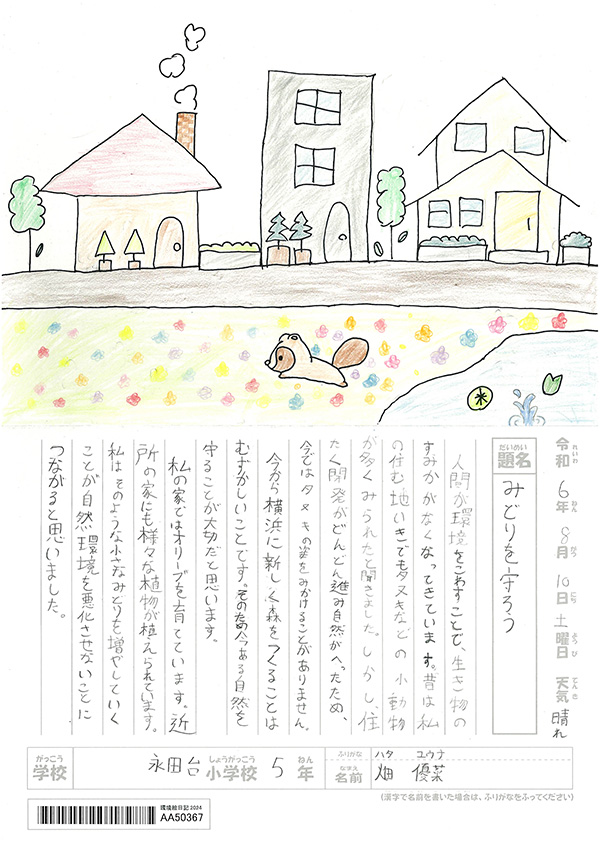 れいわ ねん がつ にち ようび てんき
令和6年8月10日土曜日 天気 晴れ
だいめい
題名 みどりを守ろう
人間が環境をこわすことで、生き物の
すみかがなくなってきています。昔は私
の住む地いきでもタヌキなどの小動物
が多くみられたと聞きました。しかし、住
たく開発がどんどん進み自然がへったため、
今ではタヌキの姿をみかけることがありません。
今から横浜に新しく森をつくることは
むずかしいことです。そのため今ある自然を
守ることが大切だと思います。
私の家ではオリーブを育てています。近
所の家にも様々な植物が植えられています。
私はそのような小さなみどりを増やしていく
ことが自然環境を悪化させないことに
つながると思いました。
がっこう しょうがっこう ねん ふりがな ハタ ユウナ
学校 永田台小学校 5年 なまえ 名前 畑 優菜
(漢字で名前を書いた場合は、ふりがなをふってください)
環境絵日記 2024
AA50367